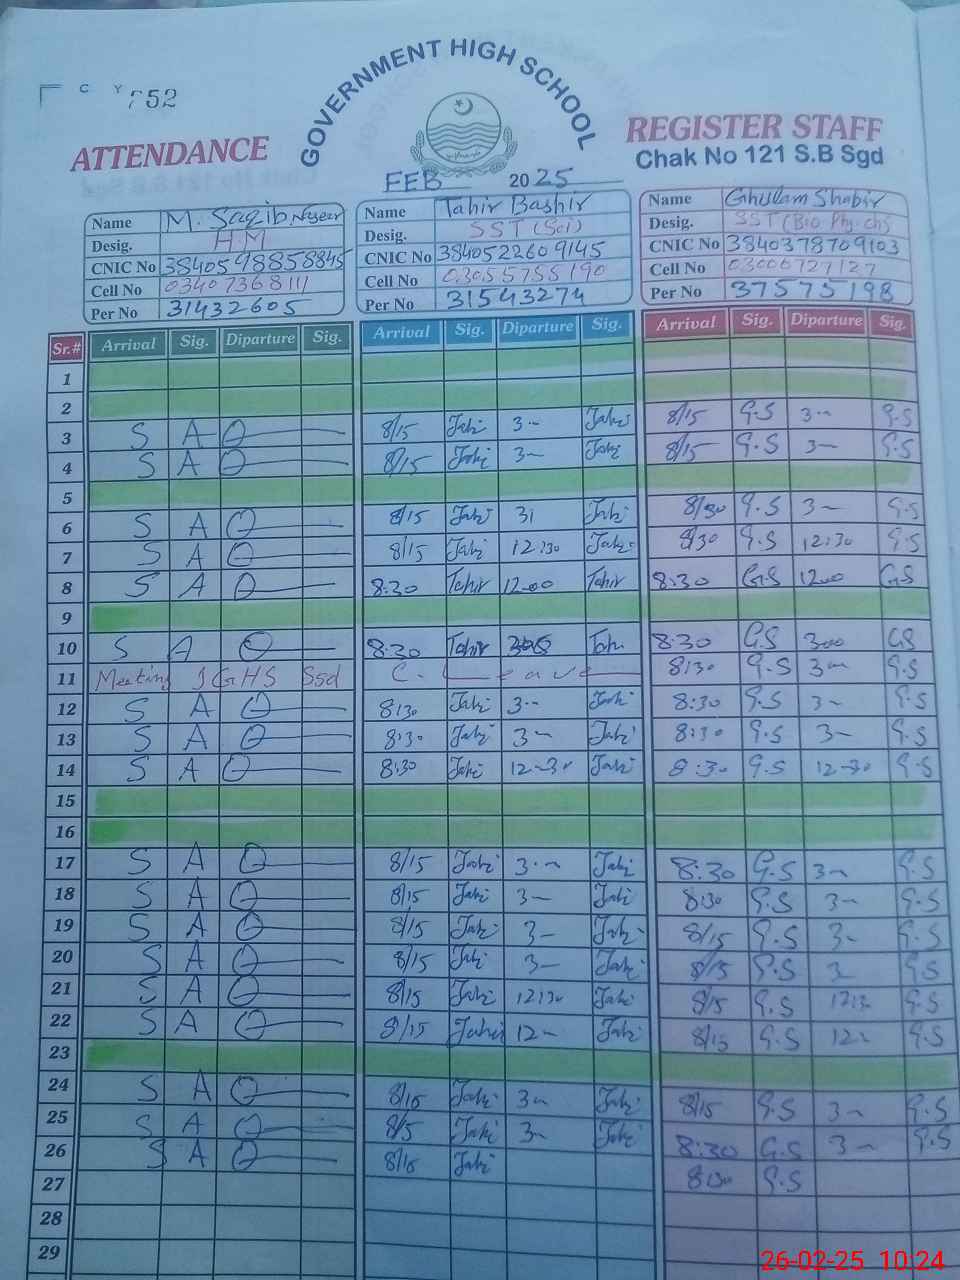 C Y
752
GOVERNMENT HIGH SCHOOL
ATTENDANCE
REGISTER STAFF
Chak No 121 S.B Sgd
FEB 2025
Name M. Saqib Naseer
Desig. H.M
CNIC No 3840598858845
Cell No 03407368111
Per No 31432605
Name Tahir Bashir
Desig. SST (Sci)
CNIC No 3840522609145
Cell No 03055755190
Per No 31543274
Name Ghulam Shabir
Desig. SST (Bio Phy. Ch)
CNIC No 3840378709103
Cell No 03006727127
Per No 37575198
Sr.# Arrival Sig. Diparture Sig. Arrival Sig. Diparture Sig. Arrival Sig. Diparture Sig.
1
2
3 S A O 8/15 3-- 8/15 G.S 3-- G.S
4 S A O 8/15 3- 8/15 G.S 3- G.S
5
6 S A O 8/15 8/30 G.S 3- G.S
7 S A O 8/15 12:30 8/30 G.S 12:30 G.S
8 S A O 8:30 Tahir 12-00 Tahir 8:30 G.S 1200 GS
9
10 S A O 8:30 Tahir 8:30 G.S 300 GS
11 Meeting GHS Sgd C. Leave 8:30 G.S 3-- G.S
12 S A O 8:30 3-- 8:30 G.S 3- G.S
13 S A O 8:30 3- 8:30 G.S 3- G.S
14 S A O 8:30 12-30 8:30 G.S 12-30 G.S
15
16
17 S A O 8/15 3-- 8:30 G.S 3- G.S
18 S A O 8/15 3- 8:30 G.S 3- G.S
19 S A O 8/15 3- 8/15 G.S 3- G.S
20 S A O 8/15 3- 8/15 G.S 3 G.S
21 S A O 8/15 1230 8/15 G.S 1230 G.S
22 S A O 8/15 12- 8/15 G.S G.S
23
24 S A O 8/15 3- 8/15 G.S 3- G.S
25 S A O 3- 8:30 G.S 3- G.S
26 S A O 8/15 8:30 G.S
27
28
29
26-02-25 10:24